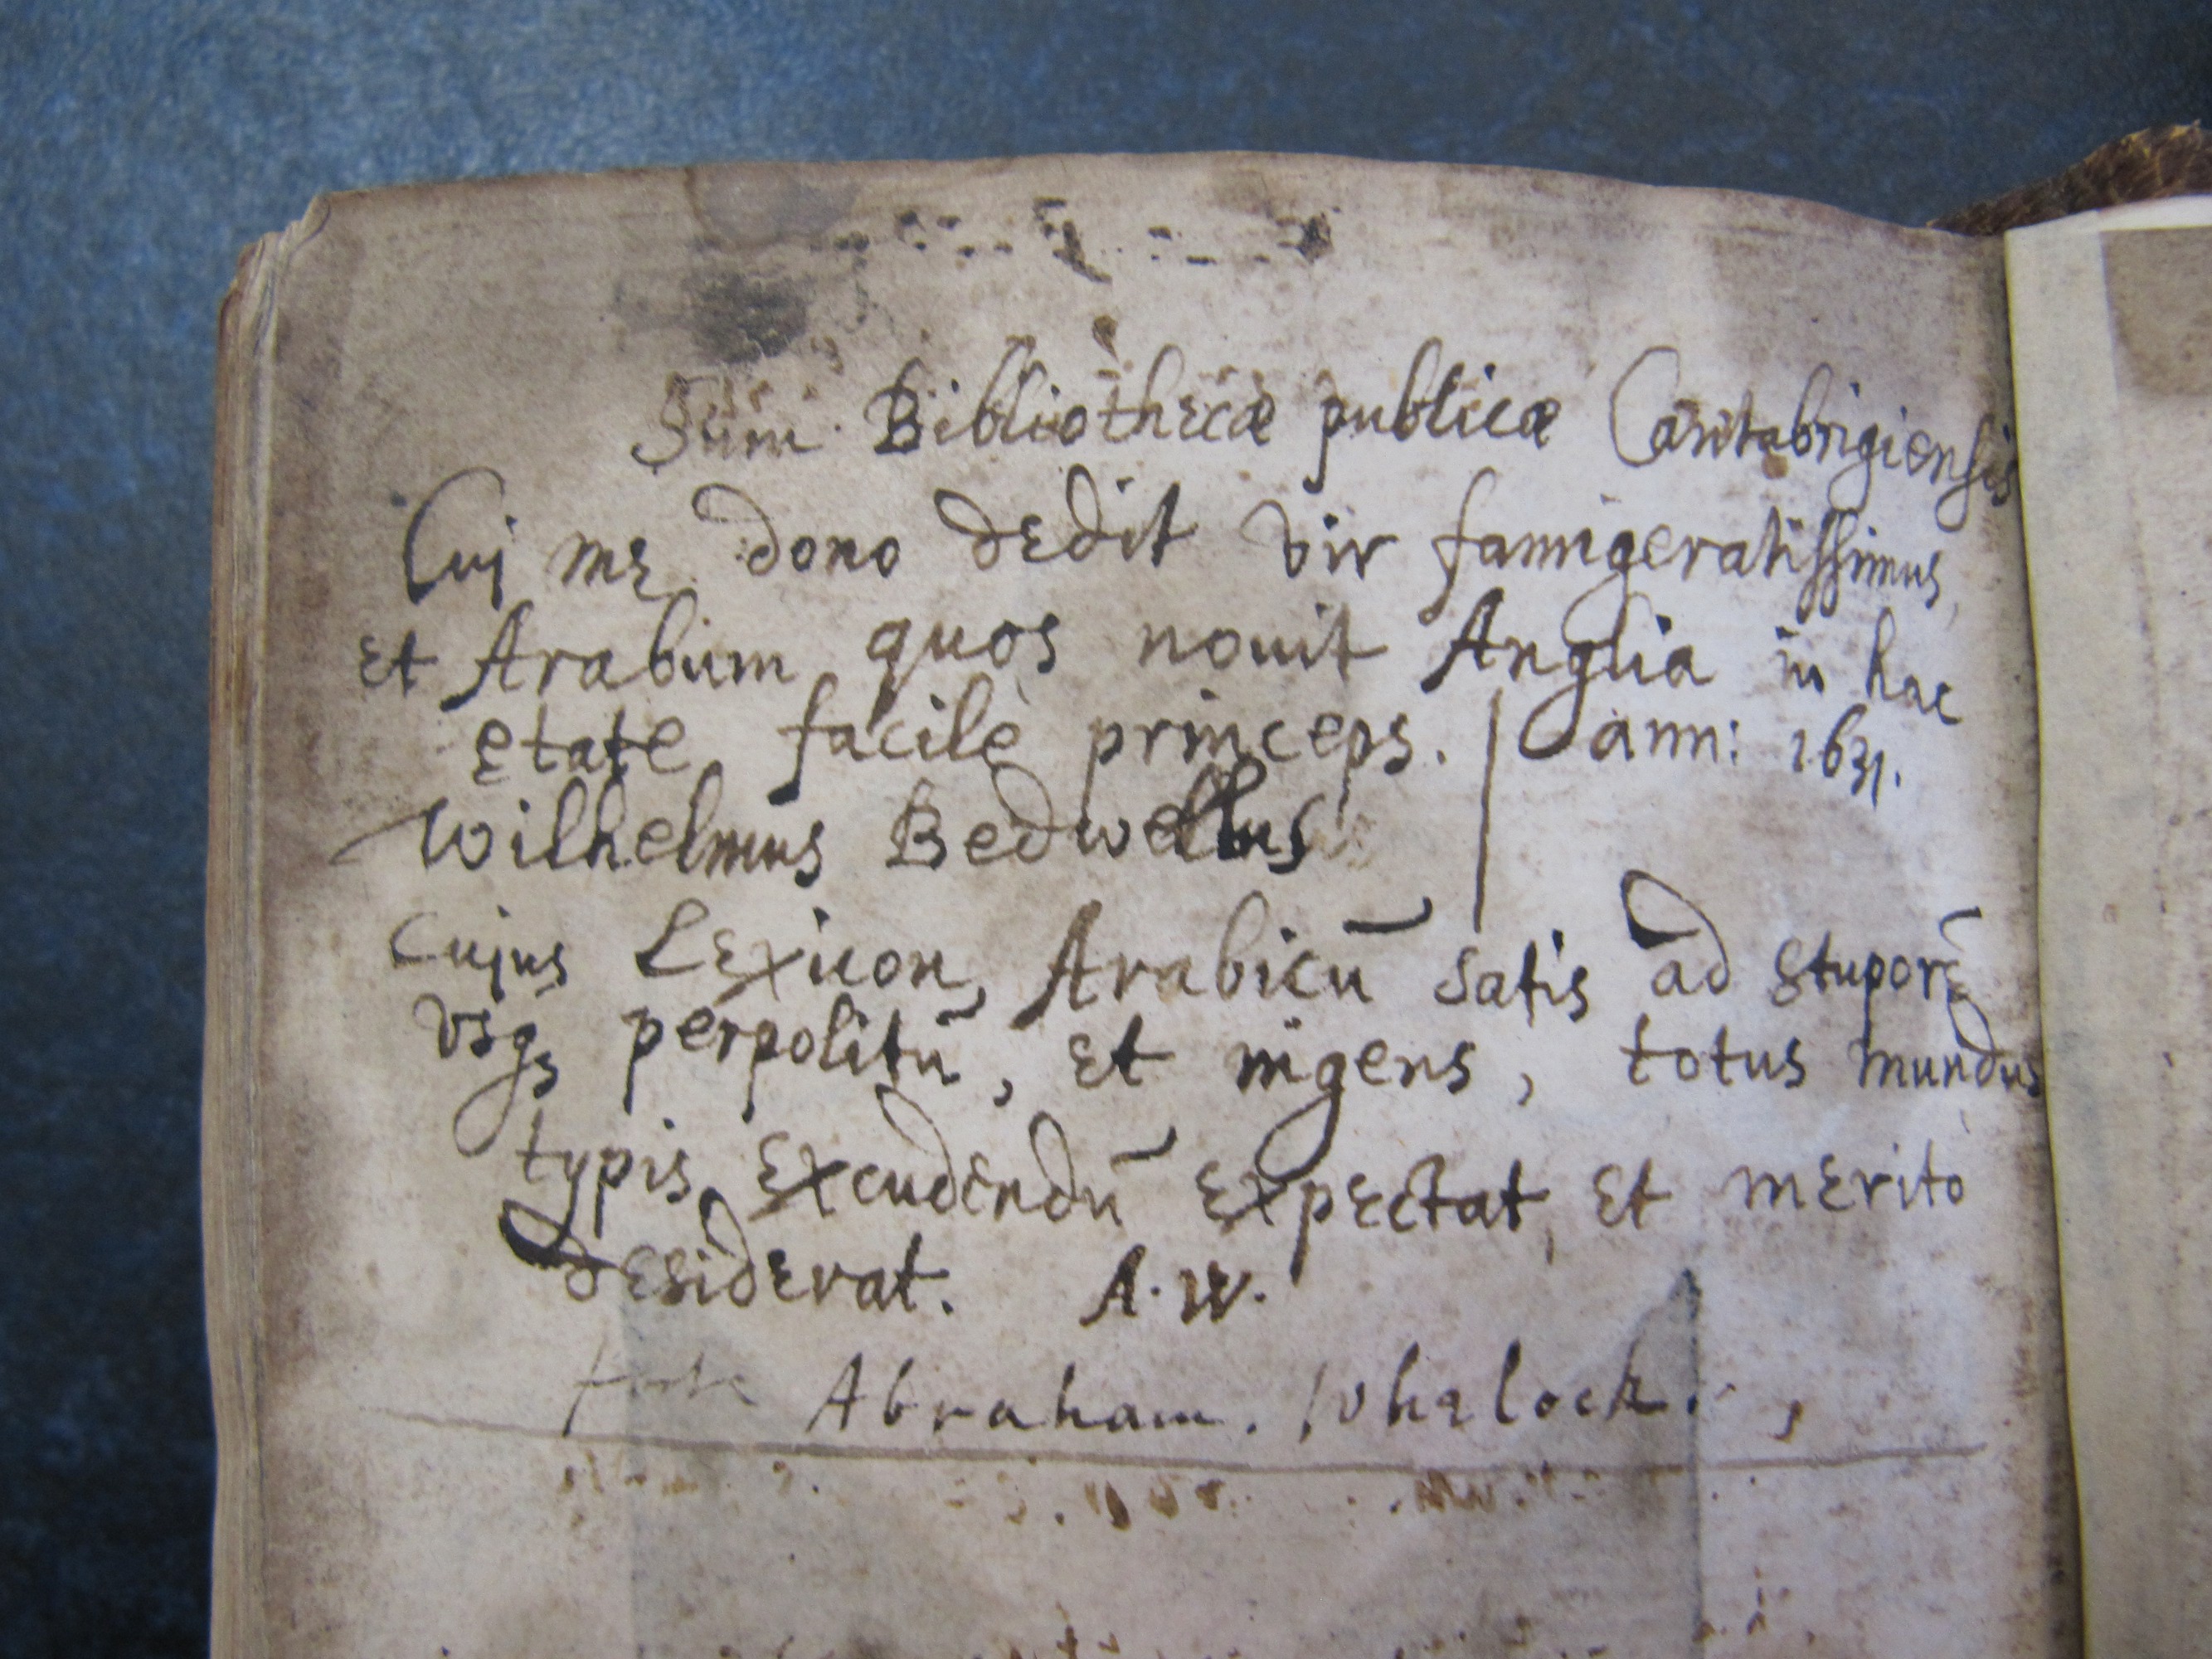 Sum Bibliothecæ publicæ Cantabrigiensis
Cuj me dono dedit vir famigeratissimus,
et Arabum quos novit Anglia in hac
ętate facilè princeps. | ann: 1631.
Wilhelmus Bedwellus
Cujus Lexicon Arabicū satis ad stuporē
vsqꝫ perpolitū, et ingens, totus mundus
typis excudendū expectat, et meritò
desiderat. A. W.
forte Abraham. Whalock.